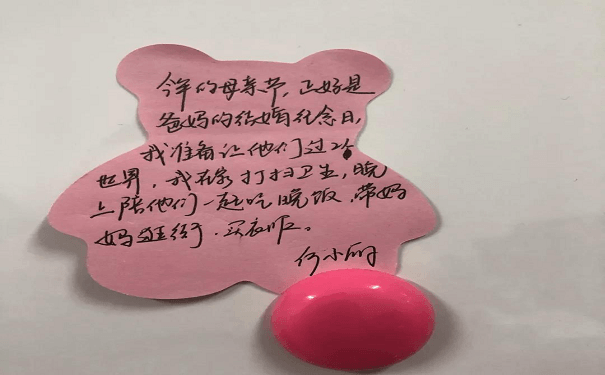 今年的母亲节,正好是
爸妈的结婚纪念日,
我准备让他们过2人
世界,我在家打扫卫生,晚
上陪他们一起吃晚饭,带妈
妈逛街,买衣服。
何小丽